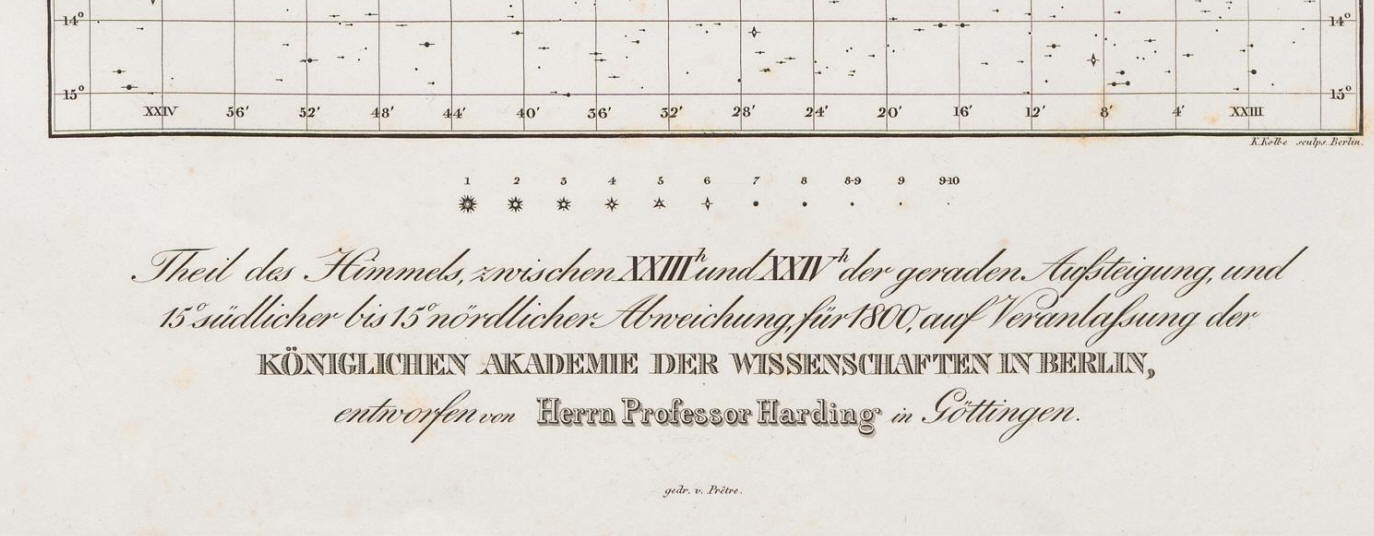 14° 14°
15° 15°
XXIV 56' 52' 48' 44' 40' 36' 32' 28' 24' 20' 16' 12' 8' 4' XXIII
K. Kolbe sculps. Berlin.
1 2 3 4 5 6 7 8 8·9 9 9·10
Theil des Himmels, zwischen XXIIIʰ und XXIVʰ der geraden Aufsteigung, und
15° südlicher bis 15° nördlicher Abweichung, für 1800, auf Veranlaſsung der
KÖNIGLICHEN AKADEMIE DER WISSENSCHAFTEN IN BERLIN,
entworfen von Herrn Professor Harding in Göttingen.
gedr. v. Prêtre.